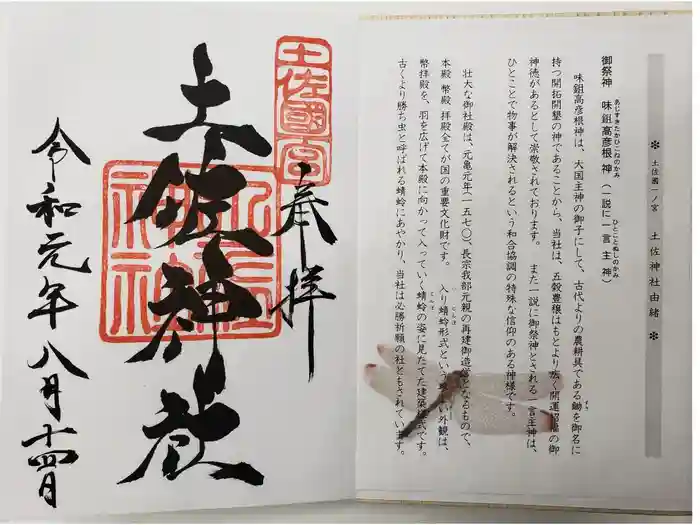 ✻ 土佐國一ノ宮 土佐神社由緒 ✻
御祭神 味鉏高彦根神(一説に一言主神)
あじすきたかひこねのかみ
ひとことぬしのかみ
味鉏高彦根神は、大国主神の御子にして、古代よりの農耕具である鋤を御名に
すき
持つ開拓開墾の神であることから、当社は、五穀豊穣はもとより広く開運招福の御
神徳があるとして崇敬されております。 また一説に御祭神とされる一言主神は、
ひとことで物事が解決されるという和合協調の特殊な信仰のある神様です。
壮大な御社殿は、元亀元年(一五七〇)、長宗我部元親の再建御造営となるもので、
本殿 幣殿 拝殿全てが国の重要文化財です。 入り蜻蛉形式という珍しい外観は、
いりとんぼ
幣拝殿を、羽を広げて本殿に向かって入っていく蜻蛉の姿に見たてた建築様式です。
とんぼ
古くより勝ち虫と呼ばれる蜻蛉にあやかり、当社は必勝祈願の社ともされています。
土佐國一宮
奉拝
土佐神社
土佐神社
令和元年八月十四日